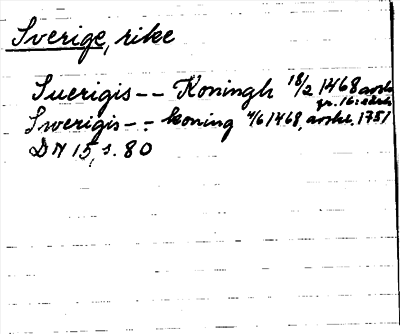 Sverige, rike
Suerigis -- Koningh 18/2 1468 avskr
fr. 16:
Swerigis -- koning 4/6 1468, avskr. 1751
DN 15, s. 80